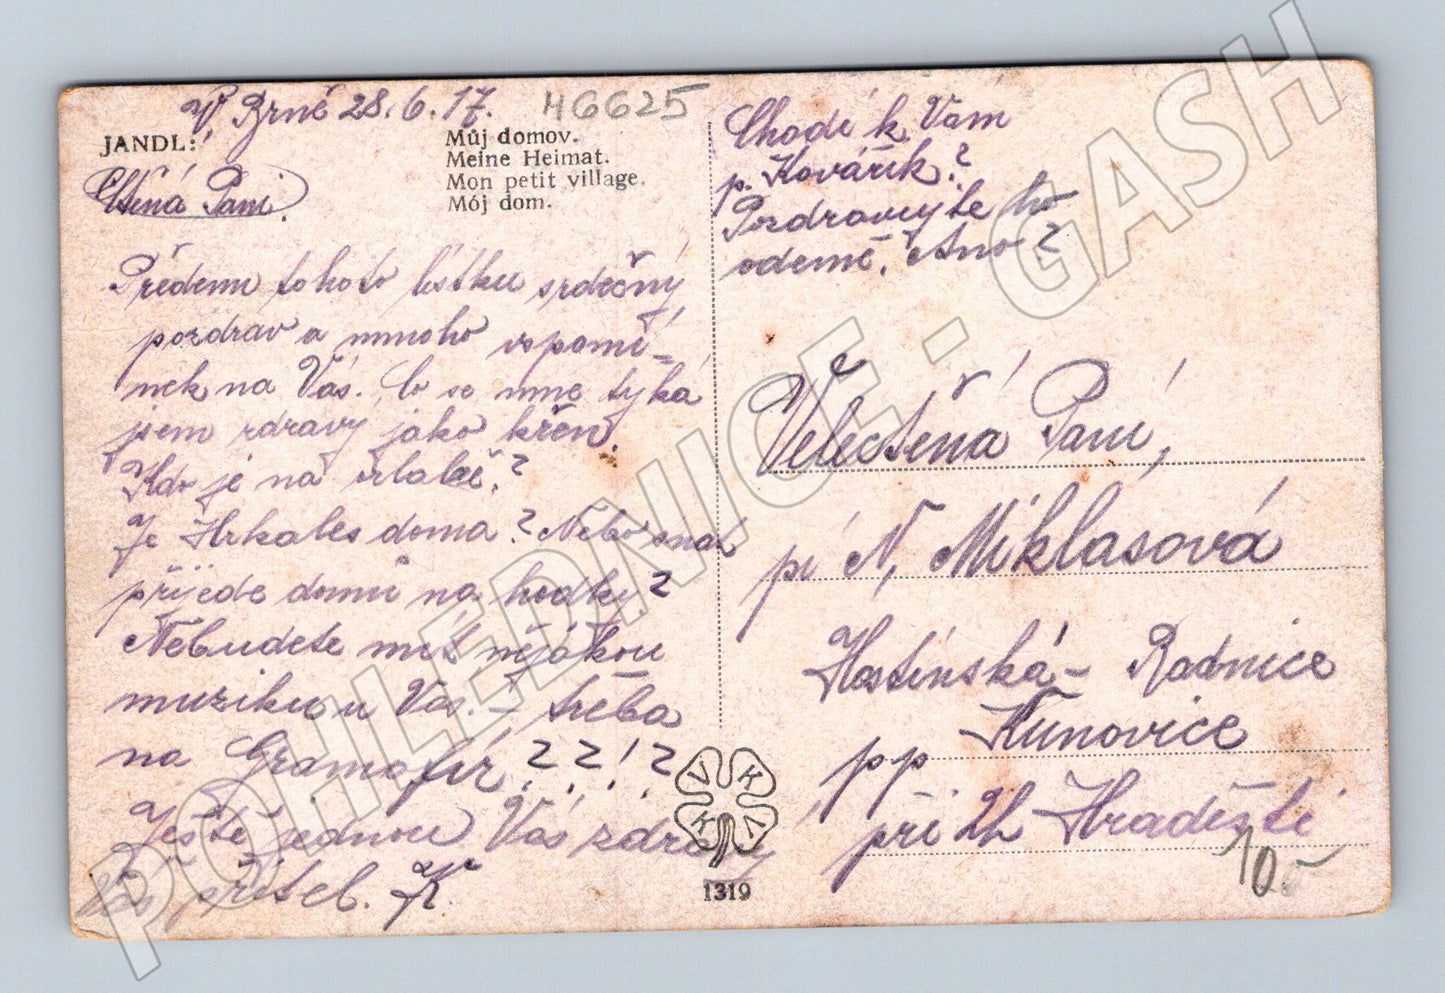 V Brně 28.6.17.
H6625
JANDL:
Můj domov.
Meine Heimat.
Mon petit village.
Mój dom.
Ctěná Paní.
Předem tohoto lístku srdečný
pozdrav a mnoho vspomí-
nek na Vás. Co se mne týká
jsem zdravy jako křen.
Kdo je na
Je Hrkales doma? Nebo snad
přijede domů na hodky?
Nebudete mít nějakou
muziku u Vás. - třeba
na Gramofir ? ? ! ?
Ještě jednou Vás zdravy
Váš přítel. K.
Chodí k Vám
p. Kovářík?
Pozdravujte ho
odemě. Ano?
Velectěná Paní,
pí N. Miklasová
Hostínská - Radnice
pp Kunovice
při Uh Hradišti
10.-
V K K V
1319
POHLEDNICE - GASH